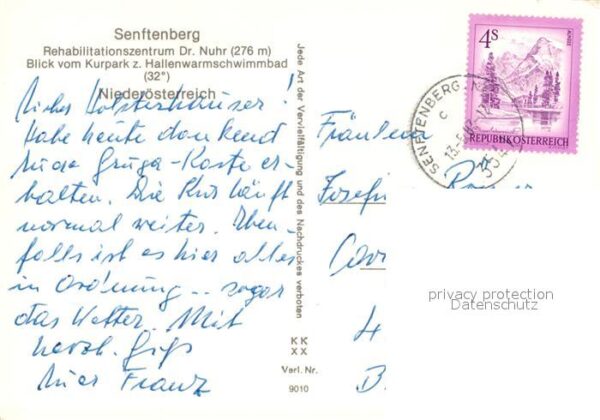 Senftenberg
Rehabilitationszentrum Dr. Nuhr (276 m)
Blick vom Kurpark z. Hallenwarmschwimmbad
(32°)
Niederösterreich
Habe heute dankend
Gruga-Karte er-
halten. Die Kur läuft
normal weiter. Eben-
falls ist es hier alles
in Ordnung -- sogar
das Wetter. Mit
herzl.
Franz
Jede Art der Vervielfältigung und des Nachdruckes verboten
KK
XX
Verl. Nr.
9010
4S
REPUBLIK ÖSTERREICH
SENFTENBERG
Fräulein
Josefin
4
B
privacy protection
Datenschutz